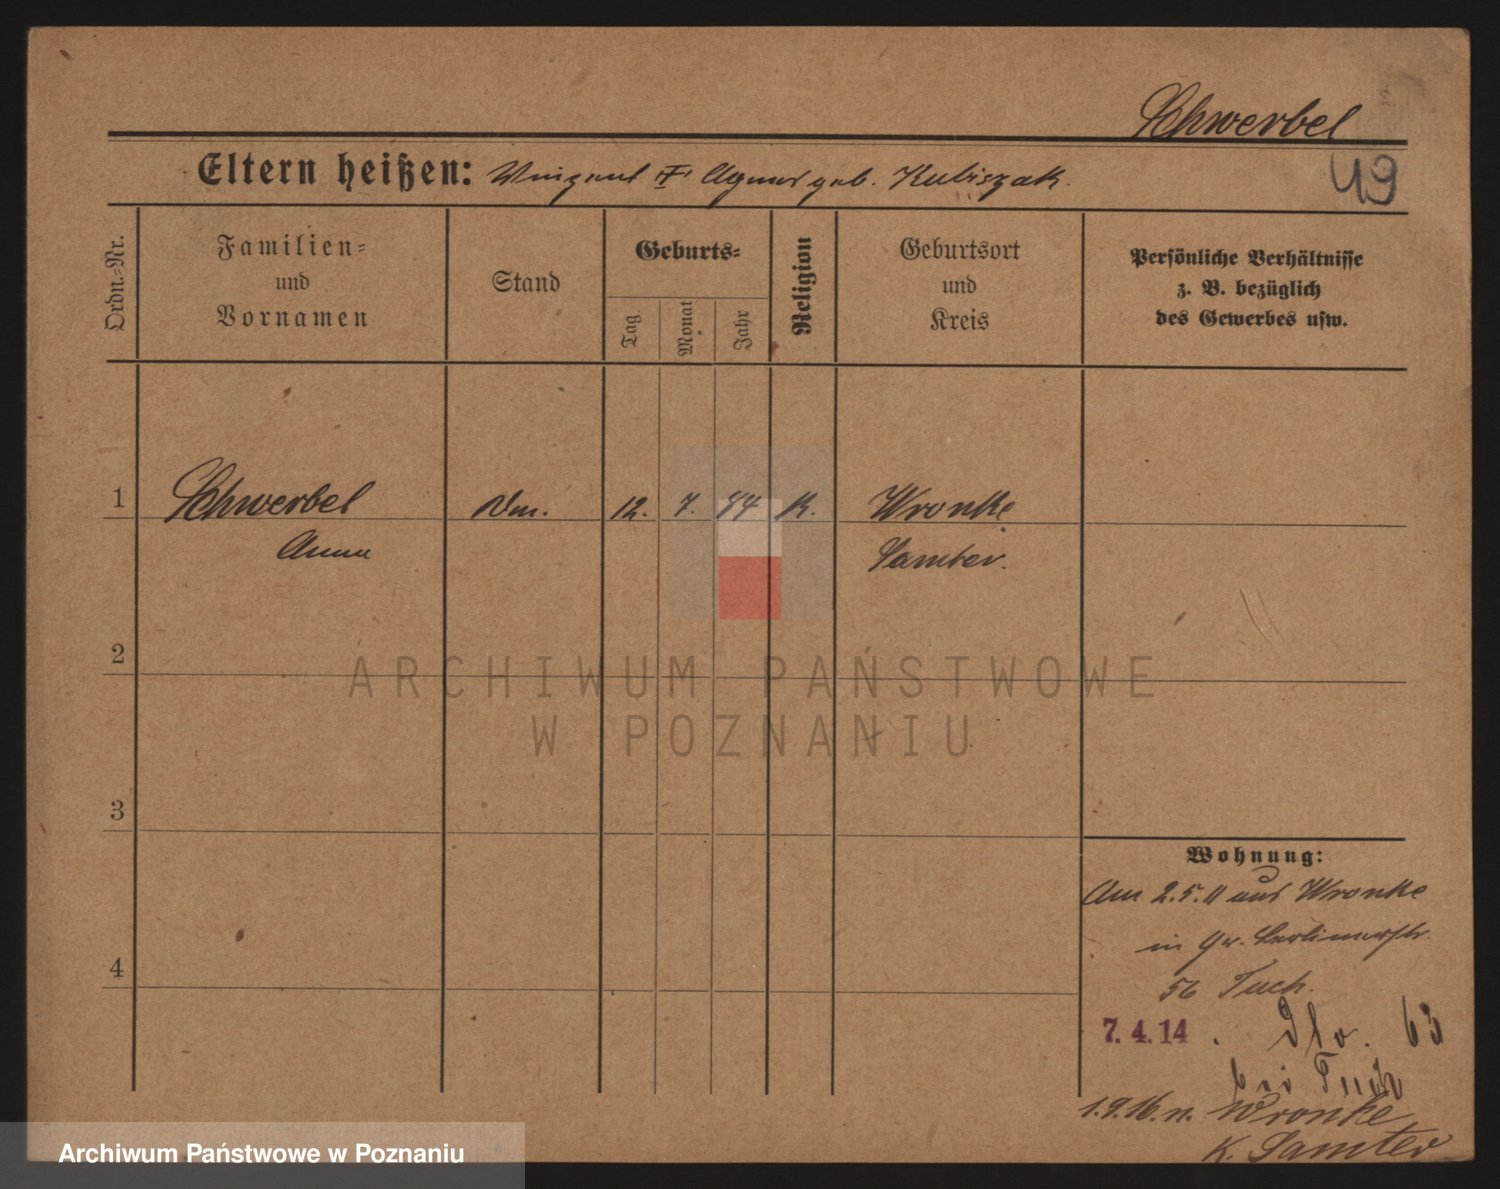 Schwerbel
49
Eltern heißen: Vinzent † Agnes geb. Kubiszak.
Ordn.-Nr.
Familien-
und
Vornamen
Stand
Geburts-
Tag
Monat
Jahr
Religion
Geburtsort
und
Kreis
Persönliche Verhältnisse
z. B. bezüglich
des Gewerbes usw.
1
Schwerbel
Anna
12. 7. 84 K.
Wronke
Samter.
2
3
4
Wohnung:
Am 2.5.11 aus Wronke
in Gr. Berlinerstr.
56 Tuch.
7. 4. 14 . 63
bei Tuch
1.9.16. n. Wronke
K. Samter
ARCHIWUM PAŃSTWOWE
W POZNANIU
Archiwum Państwowe w Poznaniu